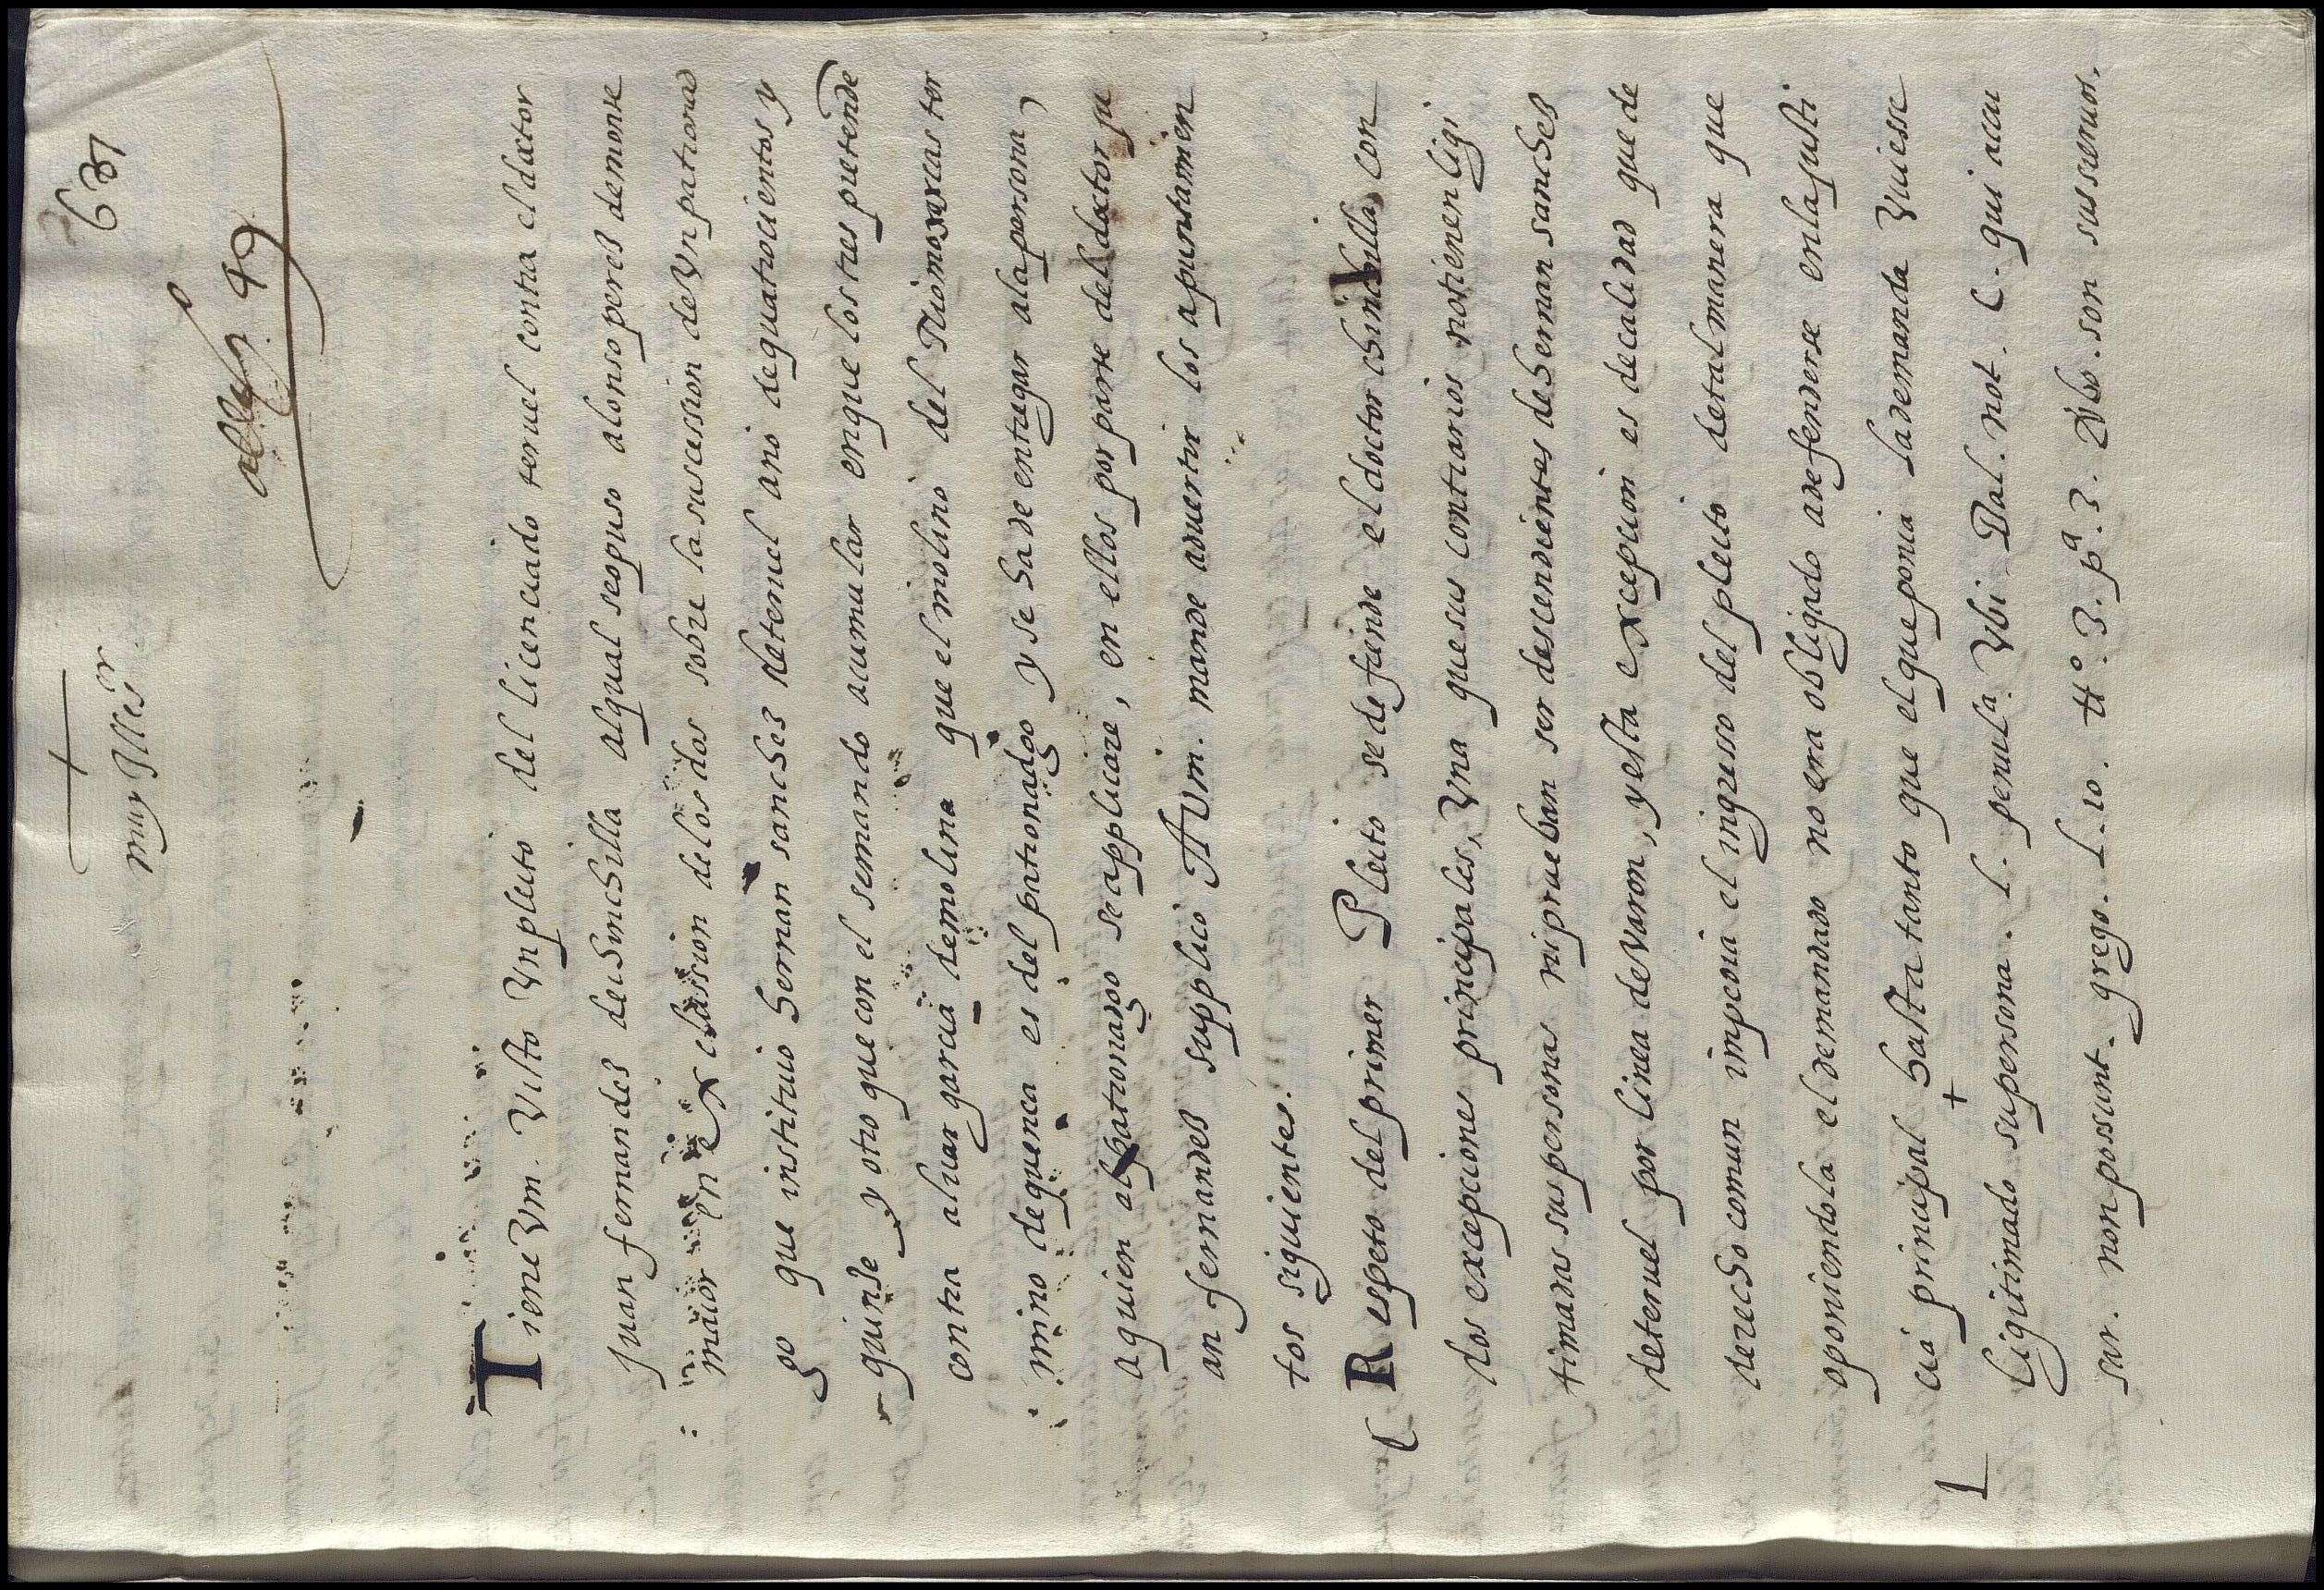 +
muy Illes r
631
49
Tiene Vm. Visto Vn pleito del licenciado teruel contra el doctor
Juan fernandes de chinchilla al qual se opuso alonso peres demonre
maior en exclussion de los dos sobre la sucession de Vn patrona
go que instituio hernan sanches de teruel ano de quatrocientos y
quinse y otro que con el se mando acumular en que los tres pretende
contra aluar garcia de molina que el molino del
mino de quenca es del patronadgo y se ha de entregar ala persona,
a quien al patronazgo se applicare, en ellos por parte del doctor ju
an fernandes supplico A Vm. mande aduertir los apuntamien
tos siguientes.
Respeto del primer Pleito se defiende el doctor chinchilla con
dos excepciones principales, Vna que sus contrarios no tienen ligi
timadas sus personas ni prueban ser descendientes de hernan sanches
de teruel por linea de varon, y esta excepcion es de calidad que de
derecho comun impedia el ingresso del pleito de tal manera que
oponiendola el demandado no era obligado a defenderse en la justi
cia principal hasta tanto que el que ponia la demanda Vuiesse
ligitimado su persona. l. penulta. Vbi. Bal. not. C. qui accu
sar. non possunt. grego. l. 10. tto. 3. pa. 3. Vbo. son sus sieruos.